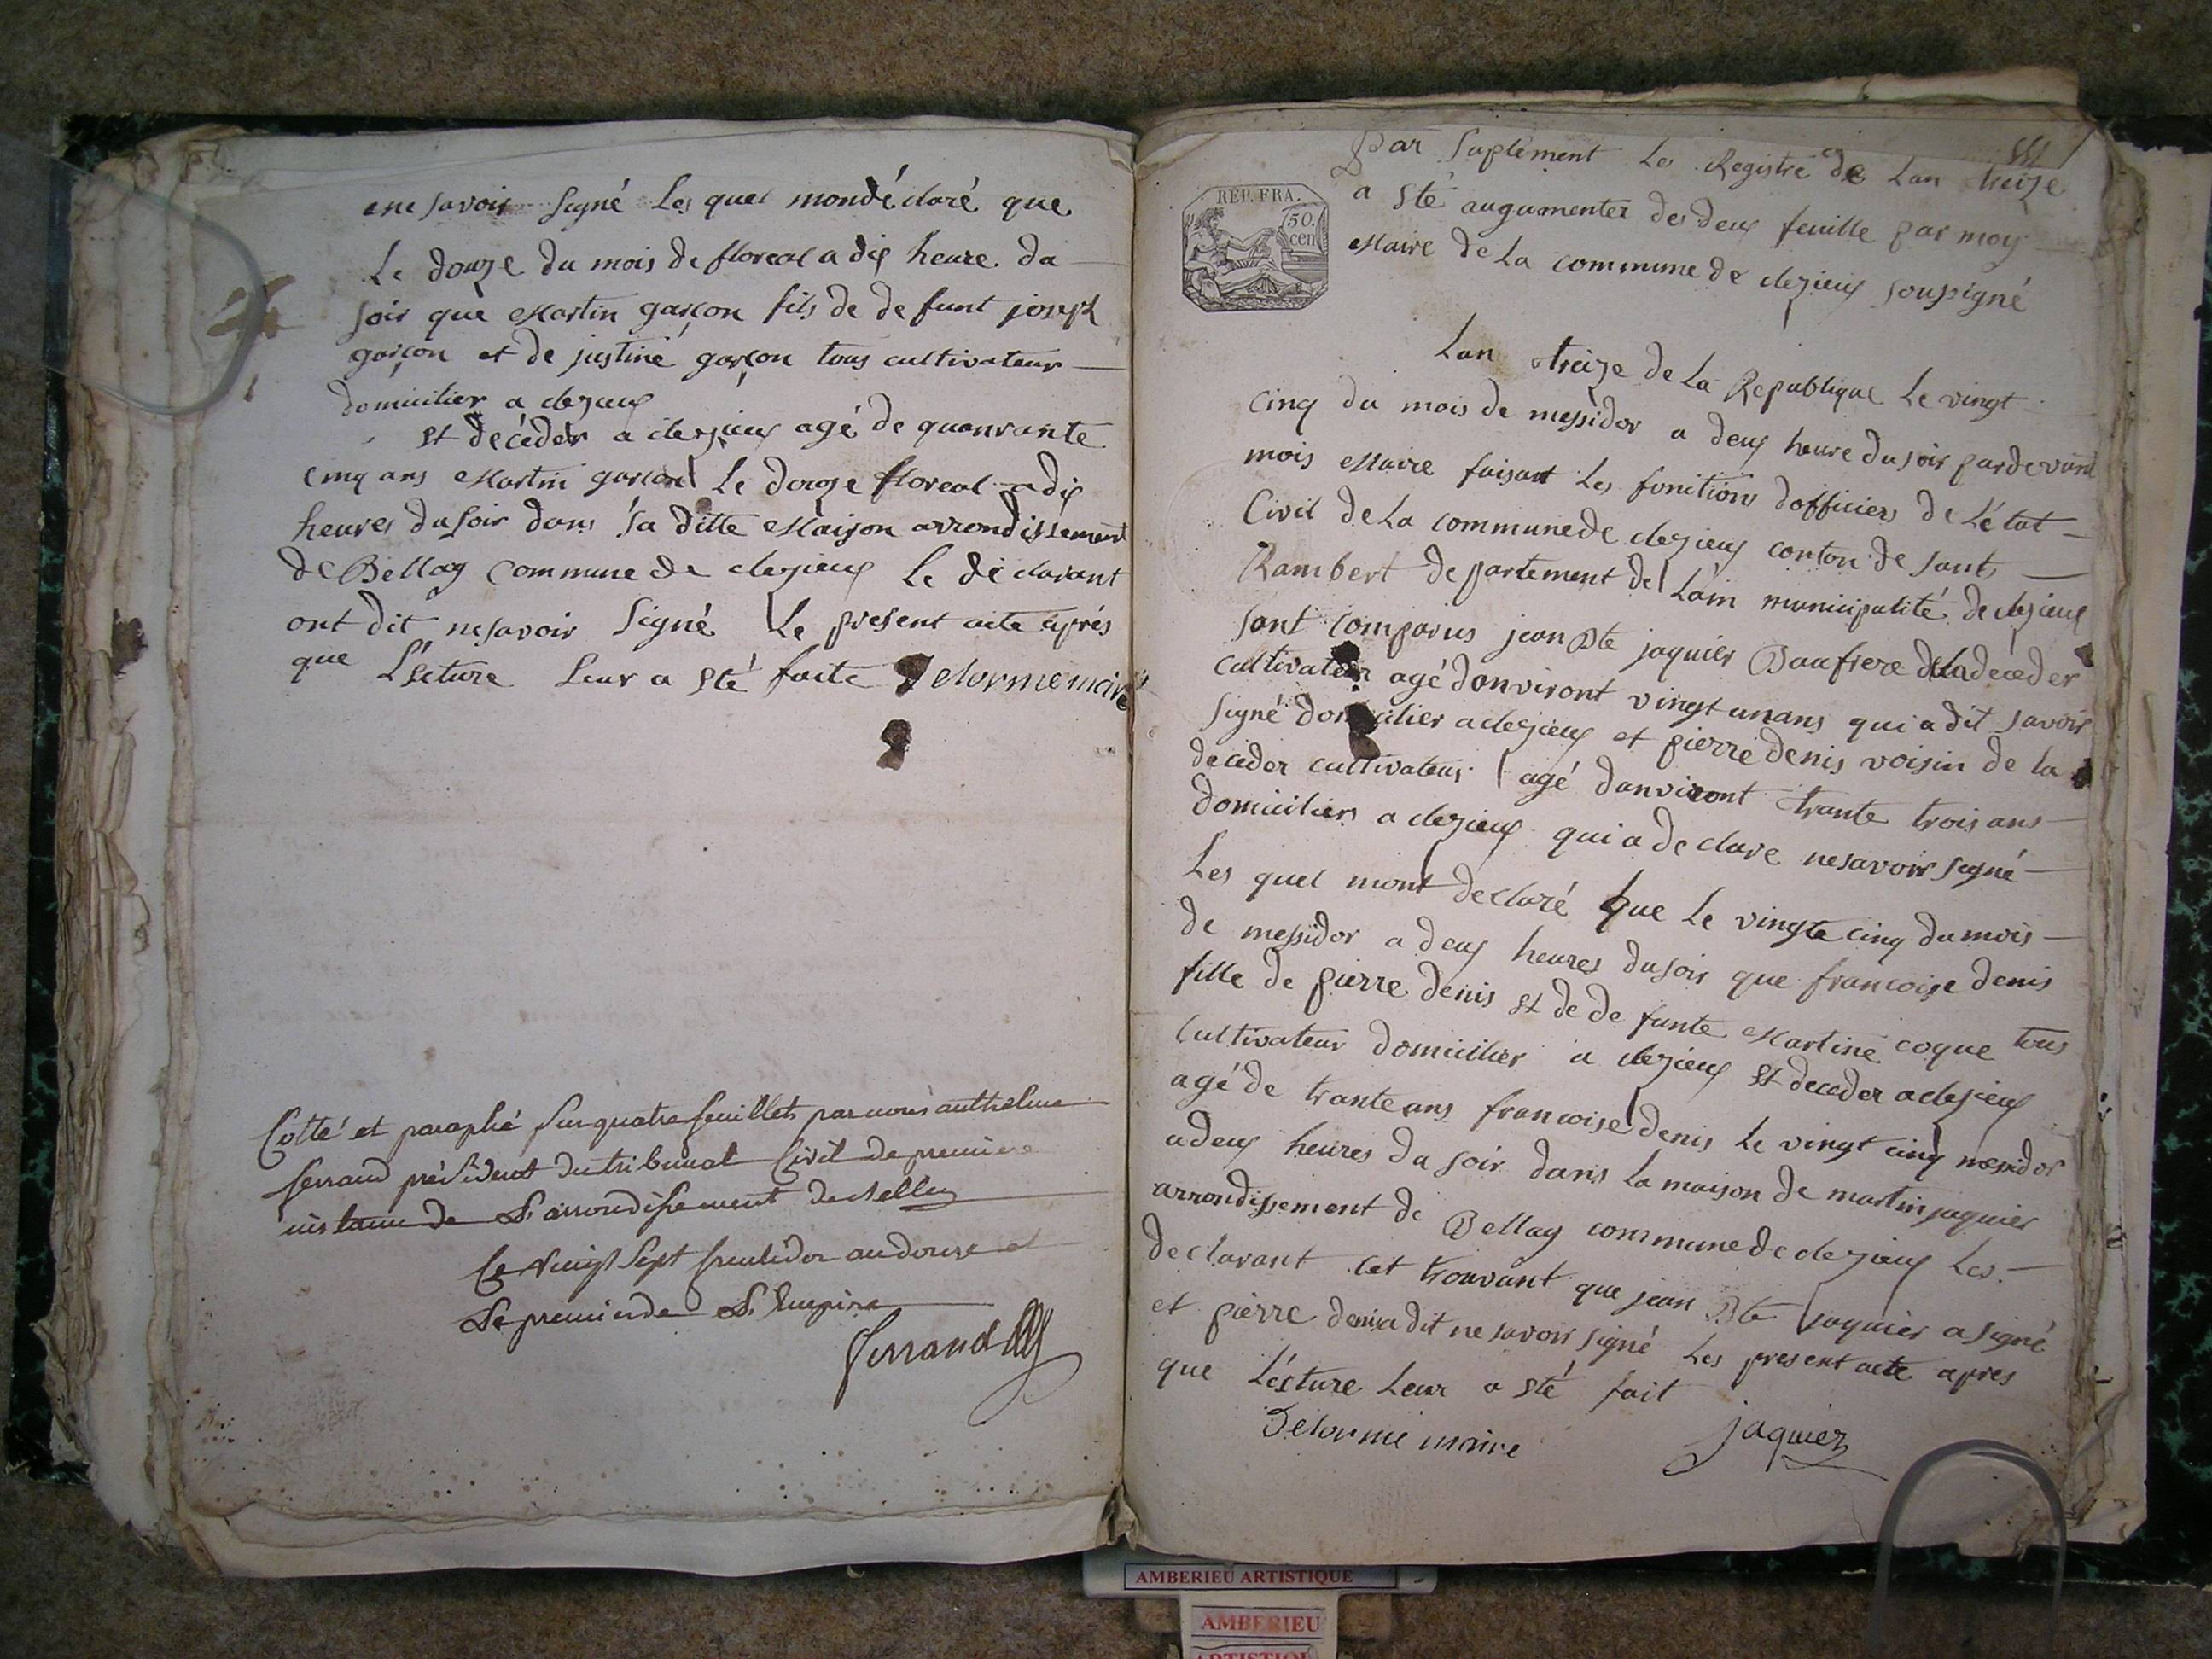 ene savoir signé Les quel mondéclaré que
Le douze du mois de floreal a dix heure du
soir que Martin garçon fils de de funt joseph
garçon et de justine garçon tous cultivateur
domicilier a clezieux
et décéder a clezieux agé de quanrante
cinq ans Martin garçon Le douze floreal a dix
heures du soir dans sa ditte Maison arrondissement
de Bellay Commune de clezieux Le déclarant
ont dit ne savoir Signé Le present acte après
que L'écture Leur a eté faite Delorme maire
Cotté et paraphé sur quatre feuillets par nous anthelme
ferrand président du tribunal Civil de premiere
instance de L'arrondissement de Belley
Ce vingt sept fructidor an douze et
Le premier de L'Empire
Ferrand
Par suplément Les Registre de Lan treize
a eté augumenter des deux feuille par moy
Maire de La commune de clezieux soussigné
REP. FRA.
50. cen
Lan treize de La Republique Le vingt
Cinq du mois de messidor a deux heure du soir par devant
mois Maire faisant Les fonctions dofficiers de L'état
Civil de La commune de clezieux conton de sant
Rambert departement de Lain municipalité de clezieux
sont comparus jean Bte jaquier Baufrere de La deceder
cultivateur agé danviront vingt un ans qui a dit savoir
signé domicilier a clezieux et pierre denis voisin de la
deceder cultivateur agé danviront trante trois ans
domiciliers a clezieux qui a declare ne savoir signé
Les quel mont declaré que Le vingte cinq du mois
de messidor a deux heures du soir que francoise denis
fille de pierre denis et de de funte Martine coque tous
cultivateur domicilier a clezieux et deceder a clezieux
agé de trante ans francoise denis Le vingt cinq messidor
a deux heures du soir dans La maison de martin jaquier
arrondissement de Bellay commune de clezieux Les
declarant cet trouvant que jean Bte jaquier a signé
et pierre denis a dit ne savoir signé Les present acte apres
que L'écture Leur a eté fait
Delorme maire jaquier
AMBERIEU ARTISTIQUE
AMBERIEU
ARTISTIQUE